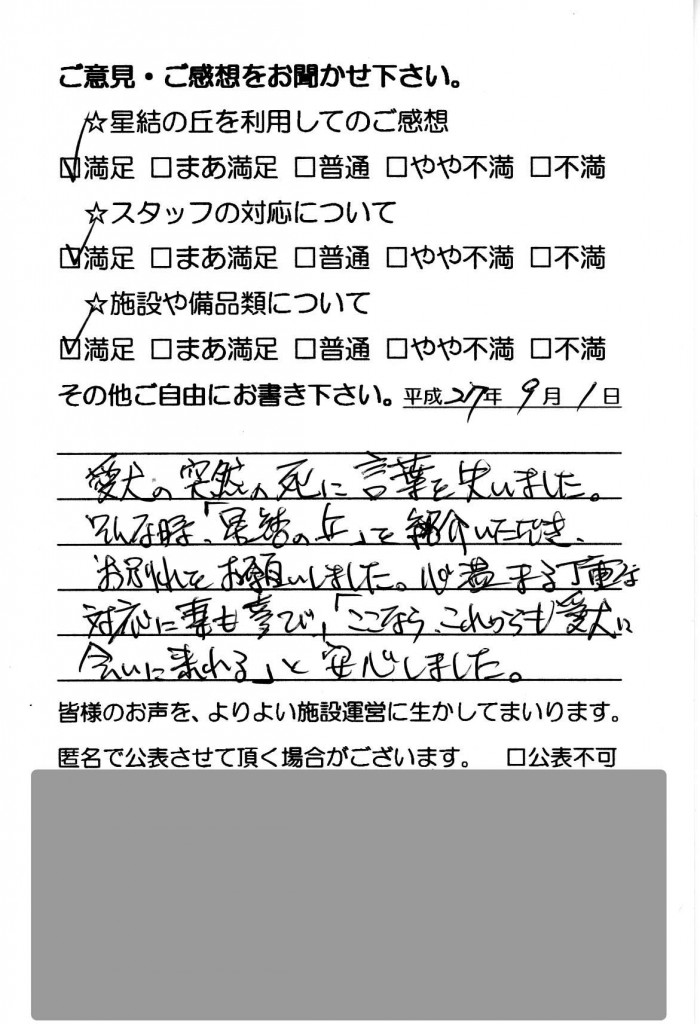 ご意見・ご感想をお聞かせ下さい。
☆星結の丘を利用してのご感想
☑満足 □まあ満足 □普通 □やや不満 □不満
☆スタッフの対応について
☑満足 □まあ満足 □普通 □やや不満 □不満
☆施設や備品類について
☑満足 □まあ満足 □普通 □やや不満 □不満
その他ご自由にお書き下さい。平成27年 9月 1日
愛犬の突然の死に言葉を失いました。
そんな時、「星結の丘」を紹介いただき、
お別れをお願いしました。心温まる丁重な
対応に妻も喜び、「ここなら、これからも愛犬に
会いに来れる」と安心しました。
皆様のお声を、よりよい施設運営に生かしてまいります。
匿名で公表させて頂く場合がございます。 □公表不可